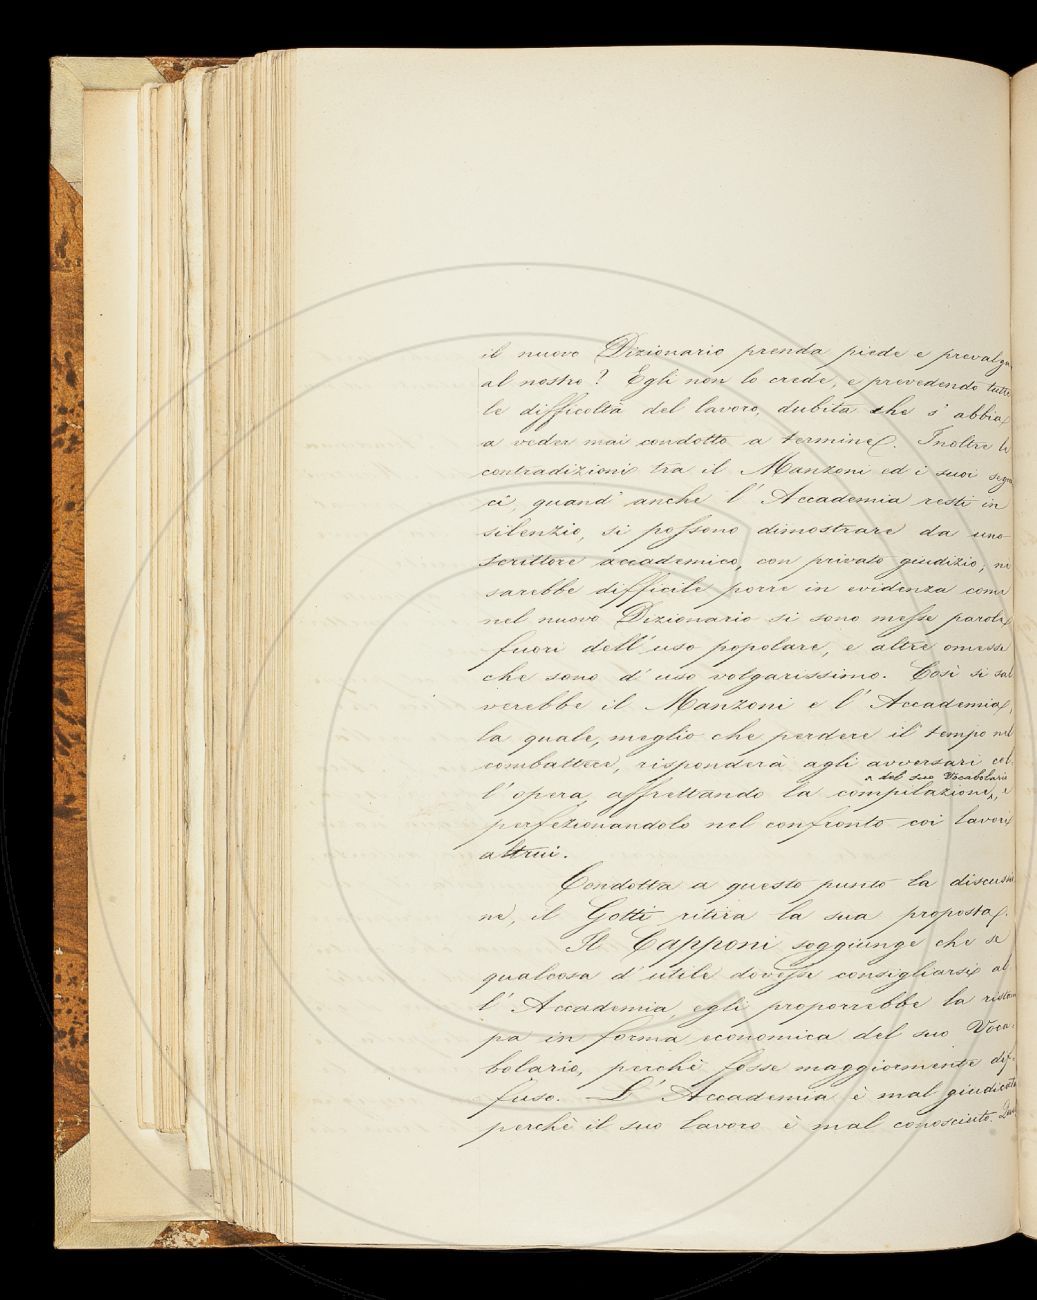 il nuovo Dizionario prenda piede e prevalga
al nostro? Egli non lo crede, e prevedendo tutte
le difficoltà del lavoro, dubita che s' abbia
a veder mai condotto a termine. Inoltre le
contradizioni tra il Manzoni ed i suoi segua
ci, quand' anche l' Accademia resti in
silenzio, si possono dimostrare da uno
scrittore accademico, con privato giudizio; nè
sarebbe difficile porre in evidenza come
nel nuovo Dizionario si sono messe parole
fuori dell' uso popolare, e altre omesse
che sono d' uso volgarissimo. Così si sal
verebbe il Manzoni e l' Accademia,
la quale, meglio che perdere il tempo nel
combattere, risponderà agli avversari col
l' opera, affrettando la compilazione, e
del suo Vocabolario
perfezionandolo nel confronto coi lavori
altrui.
Condotta a questo punto la discussio
ne, il Gotti ritira la sua proposta.
Il Capponi soggiunge che se
qualcosa d' utile dovesse consigliarsi al
l' Accademia egli proporrebbe la ristam
pa in forma economica del suo Voca-
bolario, perchè fosse maggiormente dif-
fuso. L' Accademia è mal giudicata
perchè il suo lavoro è mal conosciuto.